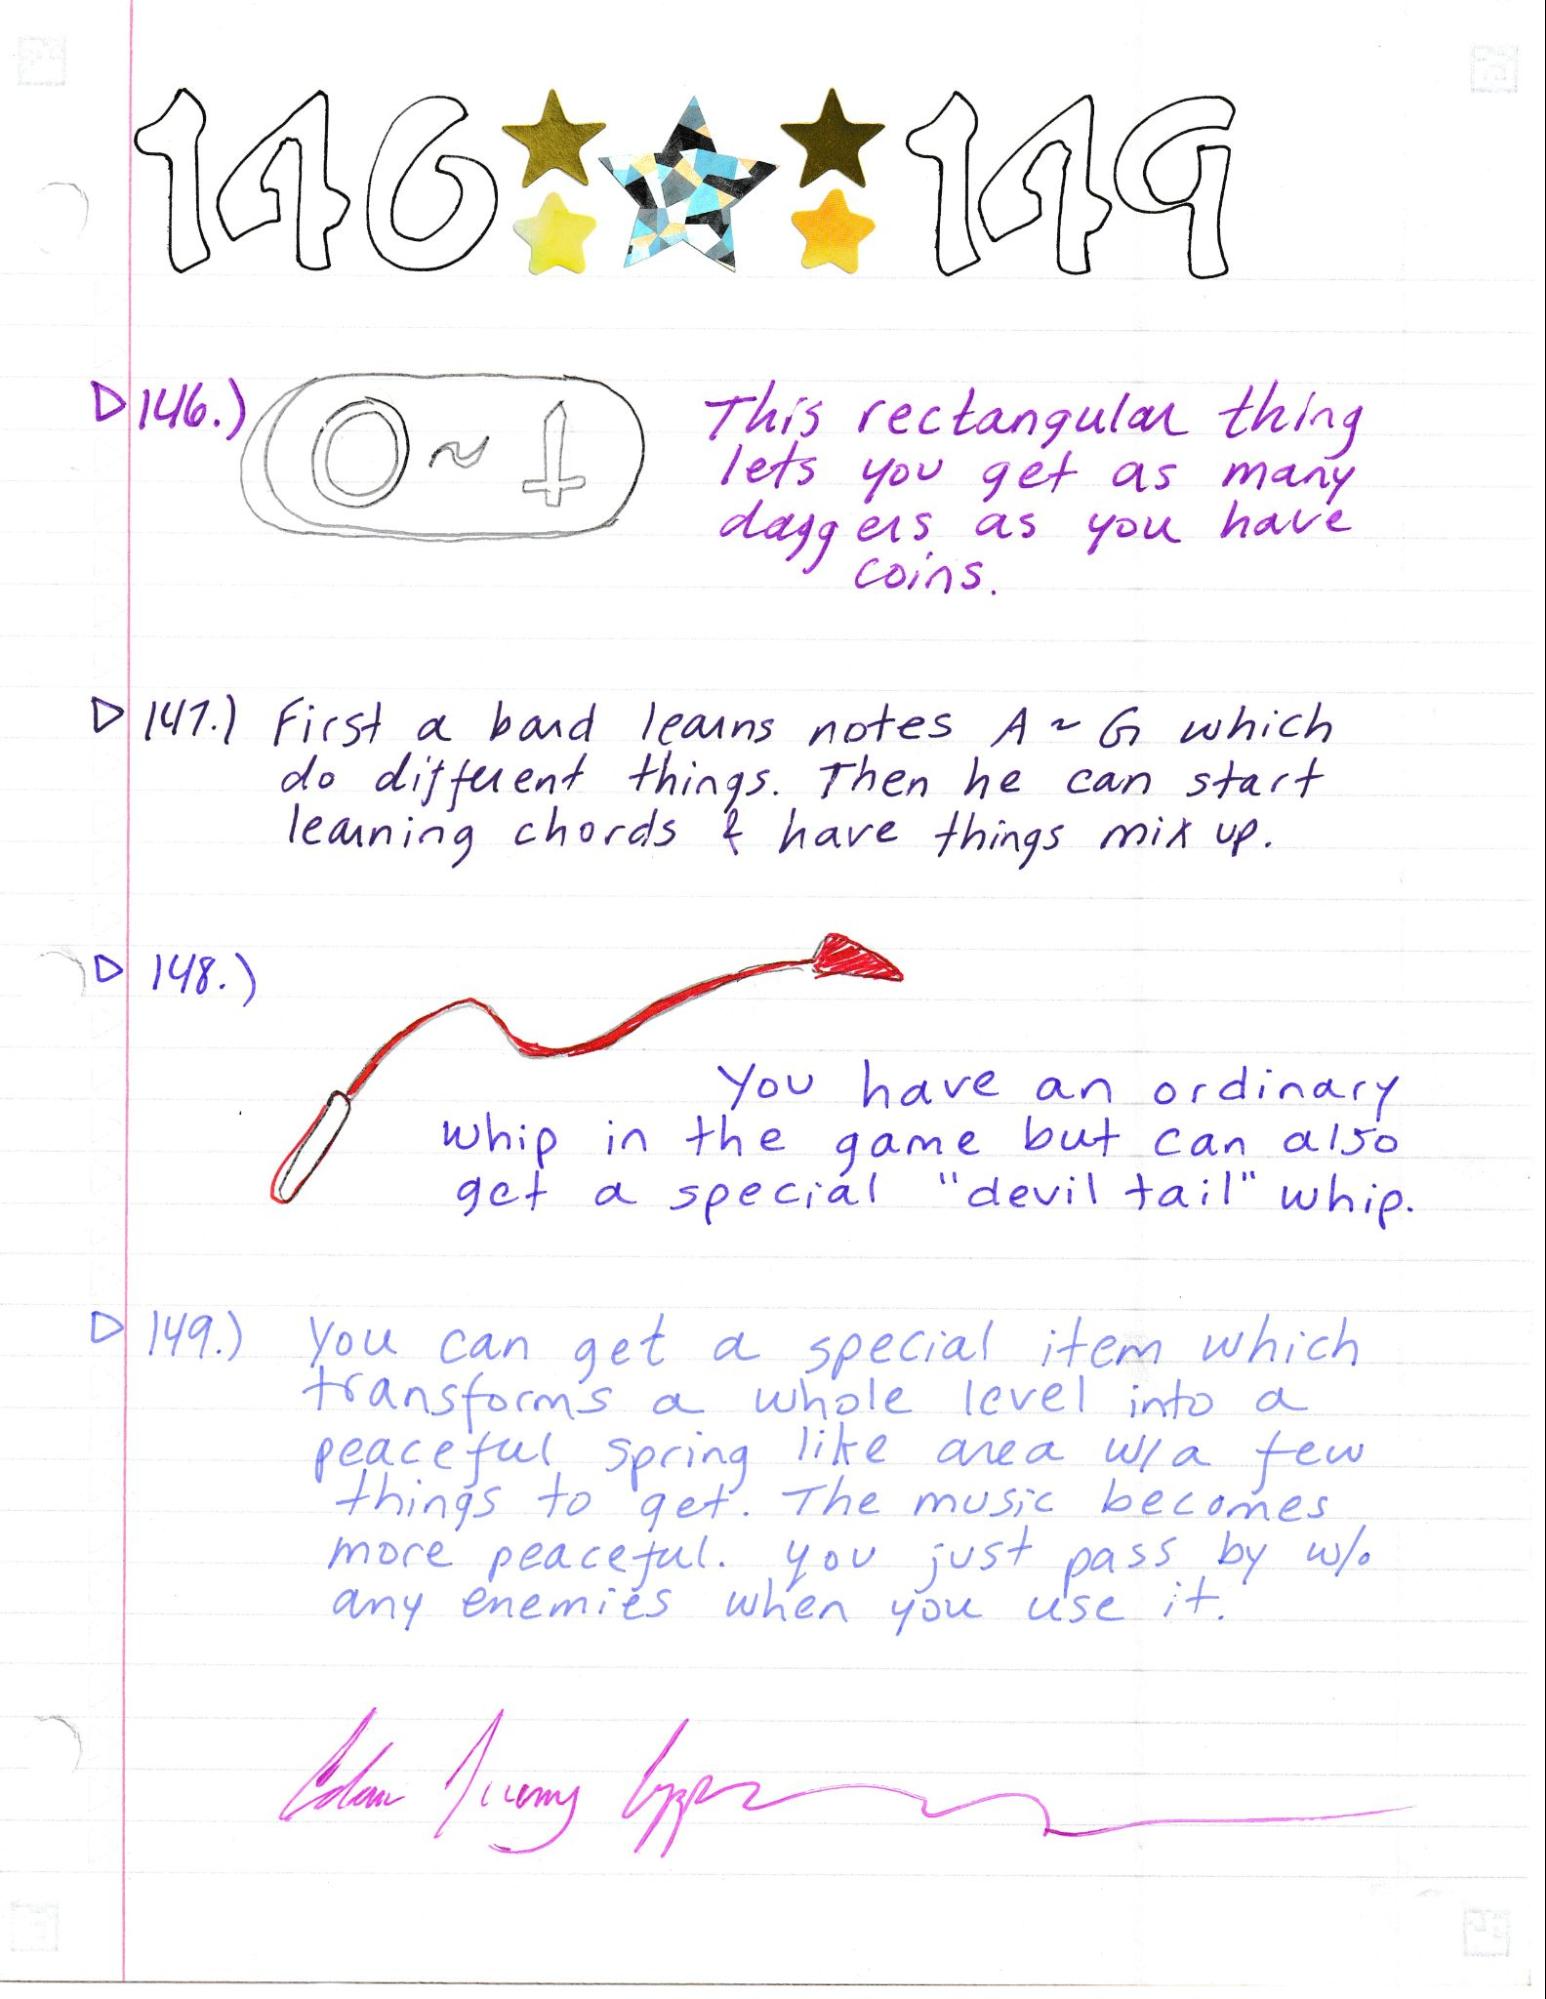 146 149
▷ 146.) ~ This rectangular thing
lets you get as many
daggers as you have
coins.
▷ 147.) First a bard learns notes A ~ G which
do different things. Then he can start
learning chords & have things mix up.
▷ 148.)
You have an ordinary
whip in the game but can also
get a special "devil tail" whip.
▷ 149.) You can get a special item which
transforms a whole level into a
peaceful spring like area w/a few
things to get. The music becomes
more peaceful. you just pass by w/o
any enemies when you use it.
Jeremy